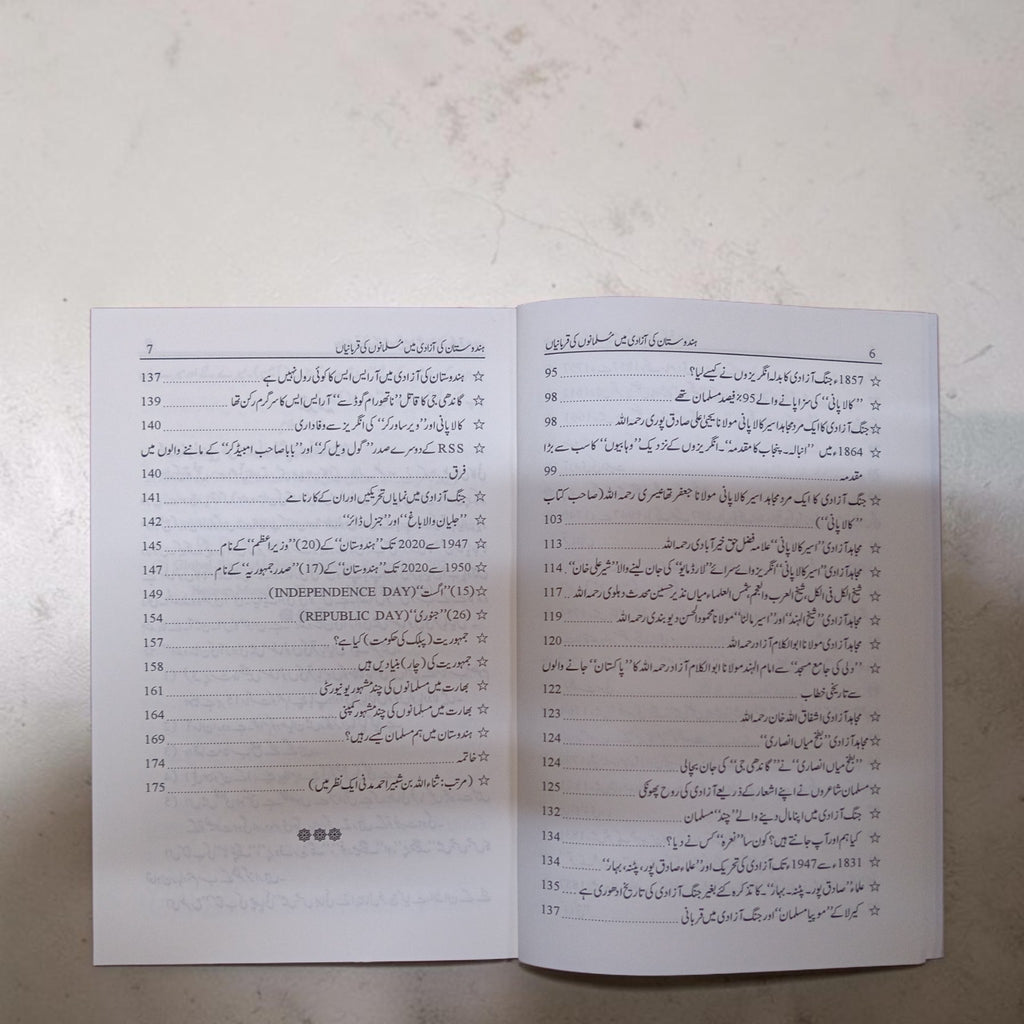 6 ہندوستان کی آزادی میں مسلمانوں کی قربانیاں
☆ 1857ء جنگ آزادی کا بدلہ انگریزوں نے کیسے لیا؟ 95
☆ ”کالا پانی“ کی سزا پانے والے 95٪ فیصد مسلمان تھے 98
☆ جنگ آزادی کا ایک مرد مجاہد اسیر کالا پانی مولانا یحییٰ علی صادق پوری رحمہ اللہ 98
☆ 1864ء میں ”انبالہ۔ پنجاب کا مقدمہ“۔ انگریزوں کے نزدیک ”وہابیوں“ کا سب سے بڑا
مقدمہ 99
☆ جنگ آزادی کا ایک مرد مجاہد اسیر کالا پانی مولانا جعفر تھانیسری رحمہ اللہ (صاحب کتاب
”کالا پانی“) 103
☆ مجاہد آزادی ”اسیر کالا پانی“ علامہ فضل حق خیر آبادی رحمہ اللہ 113
☆ مجاہد آزادی ”اسیر کالا پانی“ انگریز وائسرائے ”لارڈ مایو“ کی جان لینے والا ”شیر علی خان“ 114
☆ شیخ الکل فی الکل شیخ العرب والعجم، شمس العلماء میاں نذیر حسین محدث دہلوی رحمہ اللہ 117
☆ مجاہد آزادی ”شیخ الہند“ اور ”اسیر مالٹا“ مولانا محمود الحسن دیوبندی رحمہ اللہ 119
☆ مجاہد آزادی مولانا ابوالکلام آزاد رحمہ اللہ 120
☆ ”دلی کی جامع مسجد“ سے امام الہند مولانا ابوالکلام آزاد رحمہ اللہ کا ”پاکستان“ جانے والوں
سے تاریخی خطاب 122
☆ مجاہد آزادی اشفاق اللہ خان رحمہ اللہ 123
☆ مجاہد آزادی ”بطخ میاں انصاری“ 124
☆ ”بطخ میاں انصاری“ نے ”گاندھی جی“ کی جان بچالی 124
☆ مسلمان شاعروں نے اپنے اشعار کے ذریعے آزادی کی روح پھونکی 125
☆ جنگ آزادی میں اپنا مال دینے والے ”چند“ مسلمان 132
☆ کیا ہم اور آپ جانتے ہیں؟ کون سا ”نعرہ“ کس نے دیا؟ 134
☆ 1831ء سے 1947ء تک آزادی کی تحریک اور ”علماء صادق پور، پٹنہ، بہار“ 134
☆ علماء ”صادق پور۔ پٹنہ۔ بہار“۔ کا تذکرہ کئے بغیر جنگ آزادی کی تاریخ ادھوری ہے 135
☆ کیرلا کے ”موپیا مسلمان“ اور جنگ آزادی میں قربانی 137
ہندوستان کی آزادی میں مسلمانوں کی قربانیاں 7
☆ ہندوستان کی آزادی میں آر ایس ایس کا کوئی رول نہیں ہے 137
☆ گاندھی جی کا قاتل ”ناتھورام گوڈسے“ آر ایس ایس کا سرگرم رکن تھا 139
☆ کالا پانی اور ”ویر ساورکر“ کی انگریز سے وفاداری 140
☆ RSS کے دوسرے صدر ”گول ویل کر“ اور ”بابا صاحب امبیڈکر“ کے ماننے والوں میں
فرق 140
☆ جنگ آزادی میں نمایاں تحریکیں اور ان کے کارنامے 141
☆ ”جلیان والا باغ“ اور ”جنرل ڈائر“ 142
☆ 1947 سے 2020 تک ”ہندوستان“ کے (20) ”وزیر اعظم“ کے نام 145
☆ 1950 سے 2020 تک ”ہندوستان“ کے (17) ”صدر جمہوریہ“ کے نام 147
☆ (15) ”اگست“ (INDEPENDENCE DAY) 149
☆ (26) ”جنوری“ (REPUBLIC DAY) 154
☆ جمہوریت (پبلک کی حکومت) کیا ہے؟ 157
☆ جمہوریت کی (چار) بنیادیں ہیں 158
☆ بھارت میں مسلمانوں کی چند مشہور یونیورسٹی 161
☆ بھارت میں مسلمانوں کی چند مشہور کمپنی 164
☆ ہندوستان میں ہم مسلمان کیسے رہیں؟ 169
☆ خاتمہ 174
☆ (مرتب: ثناء اللہ بن شبیر احمد مدنی ایک نظر میں) 175